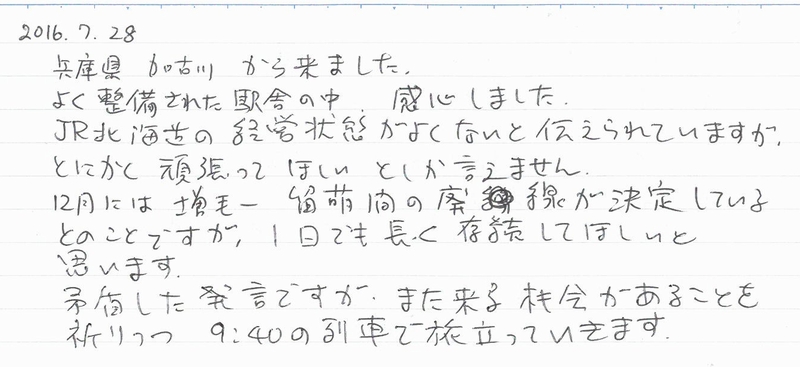 2016. 7. 28
兵庫県 加古川 から来ました.
よく整備された駅舎の中、感心しました.
JR北海道の経営状態がよくないと伝えられていますが、
とにかく頑張ってほしいとしか言えません.
12月には増毛ー留萌間の廃線が決定している
とのことですが、1日でも長く存続してほしいと
思います.
矛盾した発言ですが、また来る机会があることを
祈りつつ 9:40の列車で旅立っていきます.